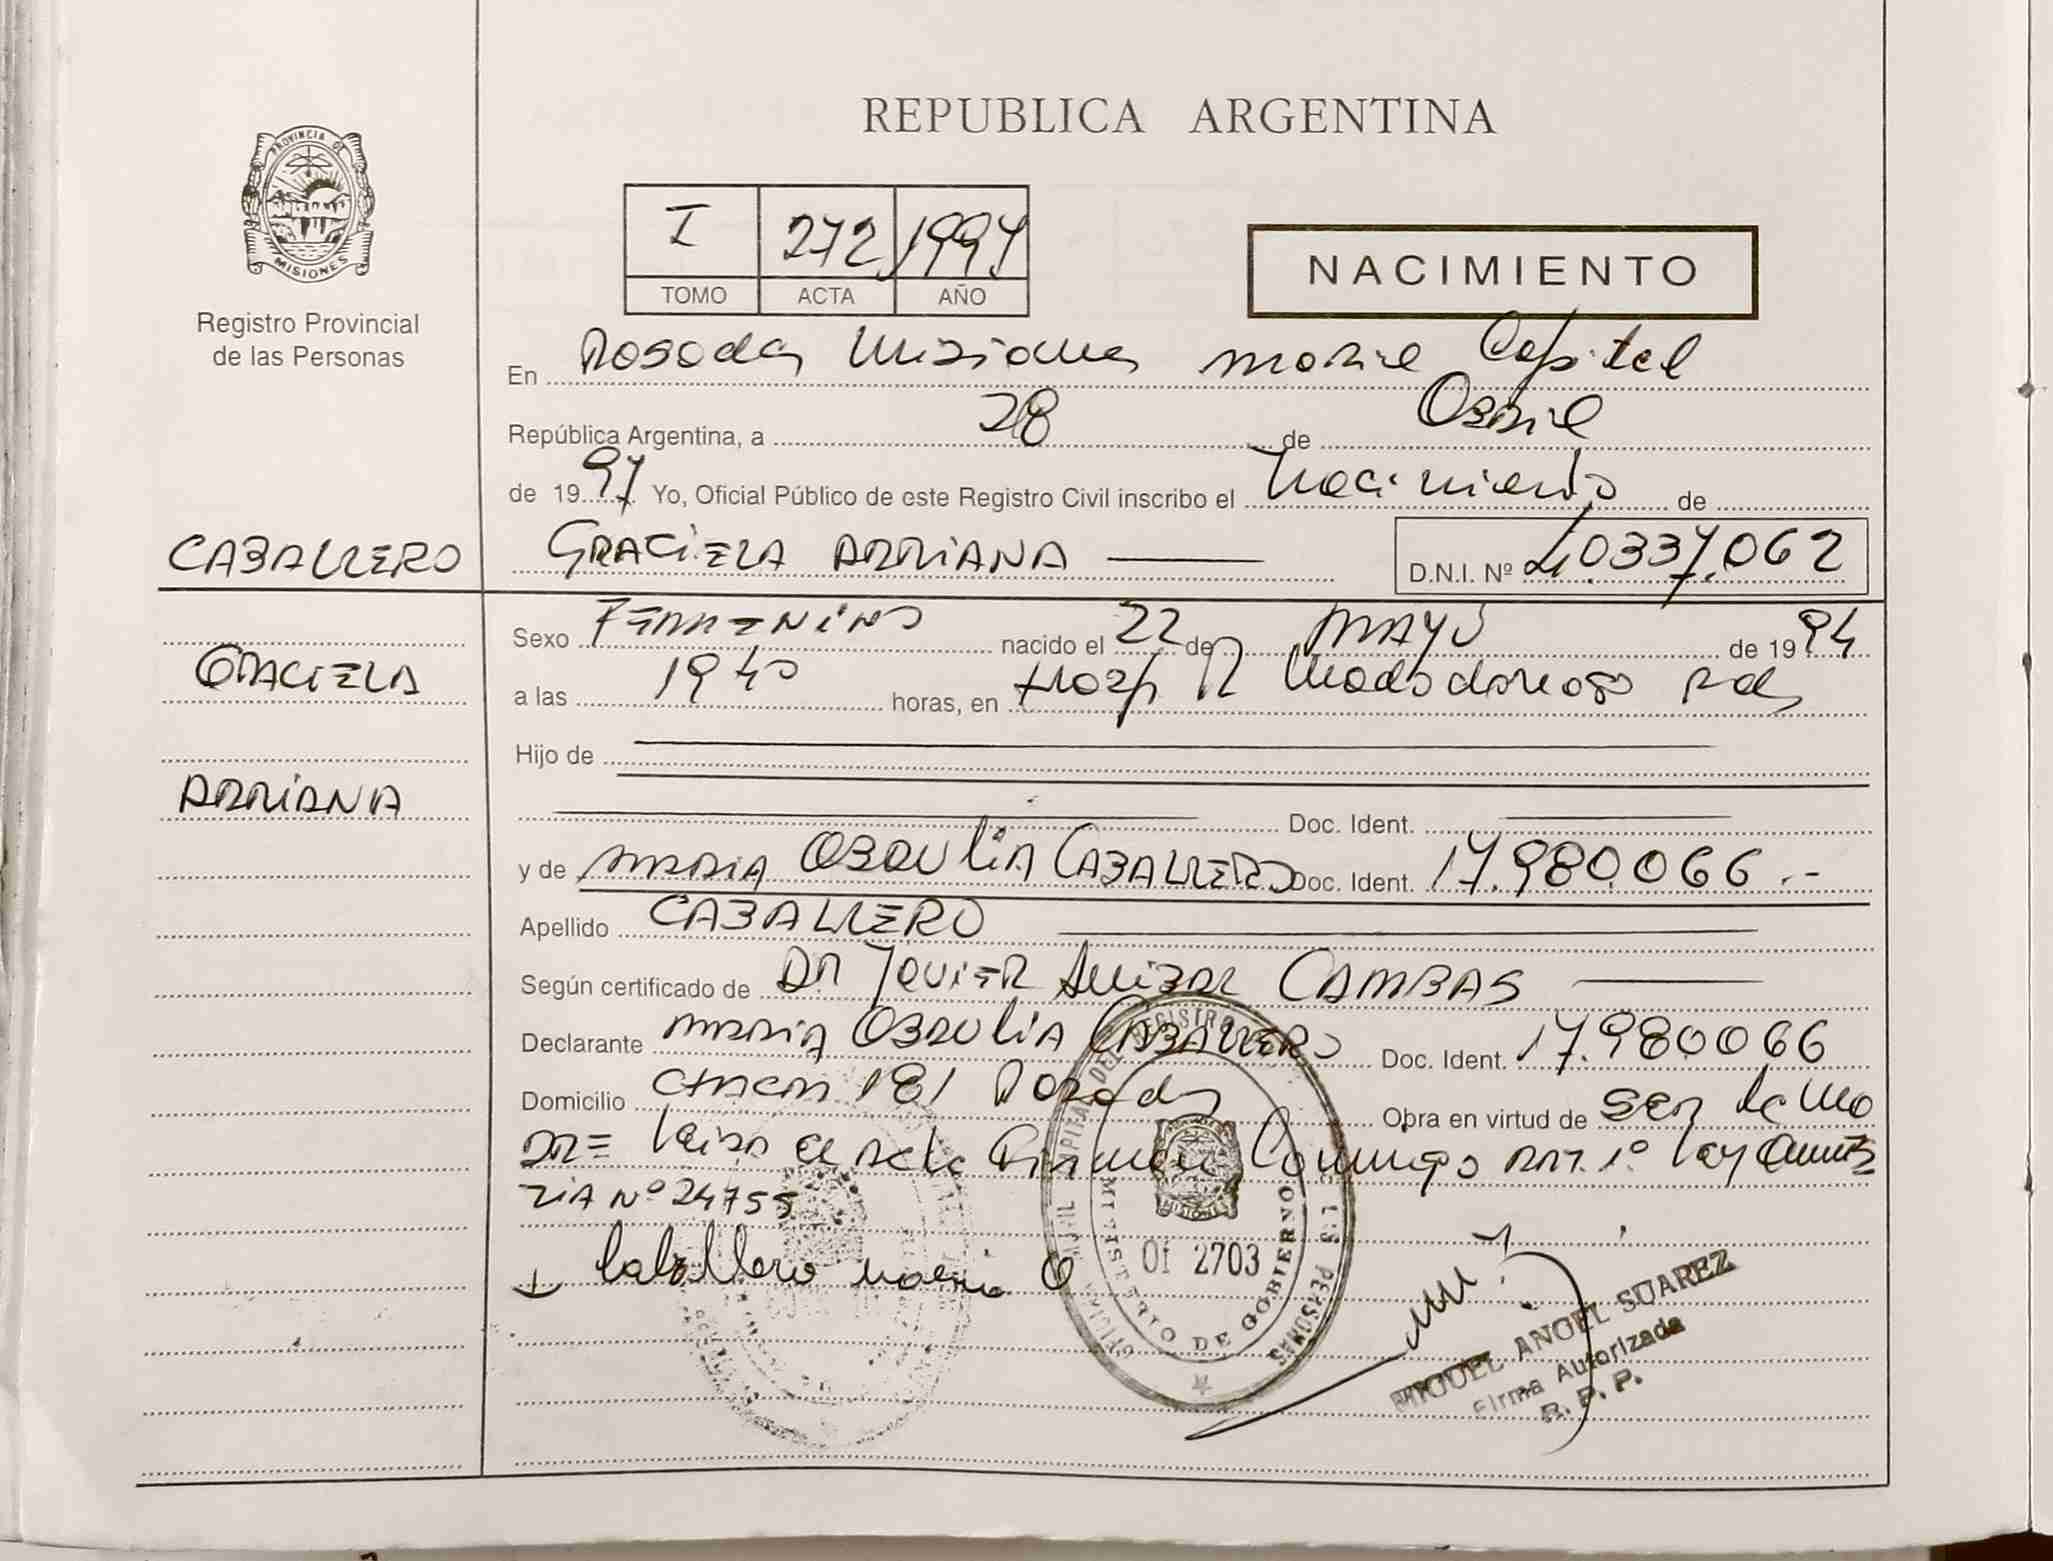 REPUBLICA ARGENTINA
PROVINCIA DE
MISIONES
Registro Provincial
de las Personas
I 272 1997
TOMO ACTA AÑO
NACIMIENTO
En Posadas Misiones Capital
República Argentina, a 28 de Abril
de 1997 Yo, Oficial Público de este Registro Civil inscribo el Nacimiento de
CABALLERO GRACIELA ADRIANA D.N.I. Nº 40.337.062
Sexo FEMENINO nacido el 22 de MAYO de 1994
GRACIELA
a las 19 40 horas, en Hosp R Madariaga Pdas
Hijo de
ADRIANA
Doc. Ident.
y de MARIA OBDULIA CABALLERO Doc. Ident. 17.980.066.-
Apellido CABALLERO
Según certificado de DR JAVIER CAMBAS
Declarante MARIA OBDULIA CABALLERO Doc. Ident. 17.980.066
Domicilio CHACRA 181 Posadas Obra en virtud de SER la MA
DRE Art. 1º Ley
Nº 24755
Caballero maria O
Of 2703
MINISTERIO DE GOBIERNO
MIGUEL ANGEL SUAREZ
Firma Autorizada
R. P. P.